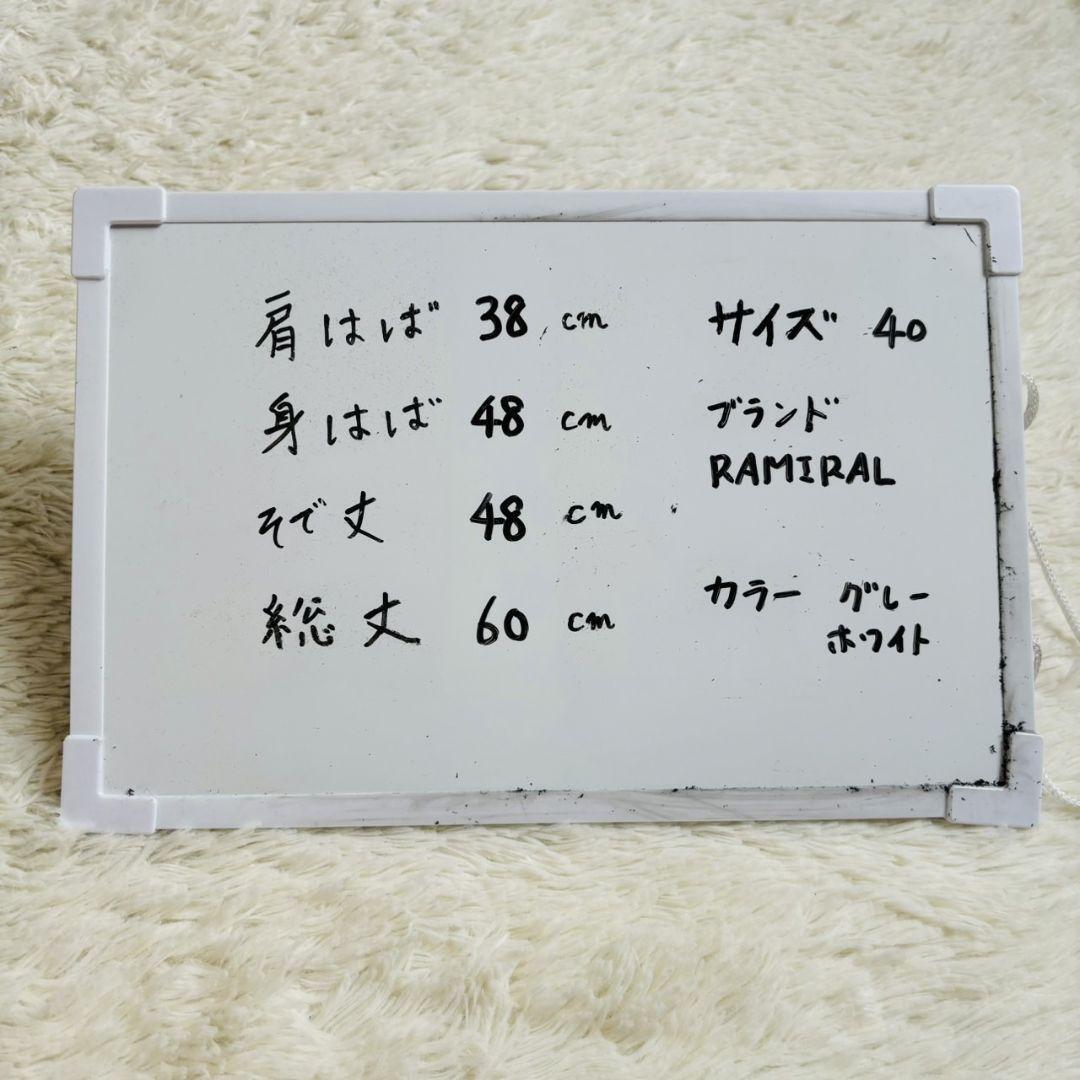 肩はば 38 cm
身はば 48 cm
そで丈 48 cm
総丈 60 cm
サイズ 40
ブランド
RAMIRAL
カラー グレー
ホワイト